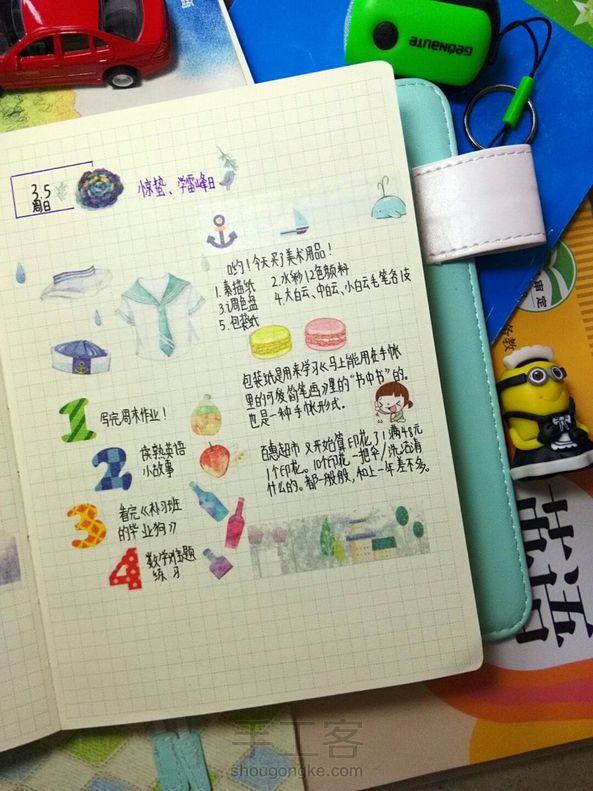 3.5
周日
惊蛰、学雷锋日
哟!今天买了美术用品!
1.素描纸 2.水粉12色颜料
3.调色盘 4.大白云、中白云、小白云毛笔各1支
5.包装纸
包装纸是用来学习《马上能用在手帐
里的可爱简笔画》里的“书中书”的。
也是一种手帐形式。
1 写完周末作业!
2 读熟英语
小故事
3 看完《补习班
的毕业狗》
4 数学难题
练习
百惠超市又开始算印花了!满48元
1个印花。10个印花一把伞/洗洁精
什么的。都一般般,和上一年差不多。
GEONAUTE
英语
手工客
shougongke.com